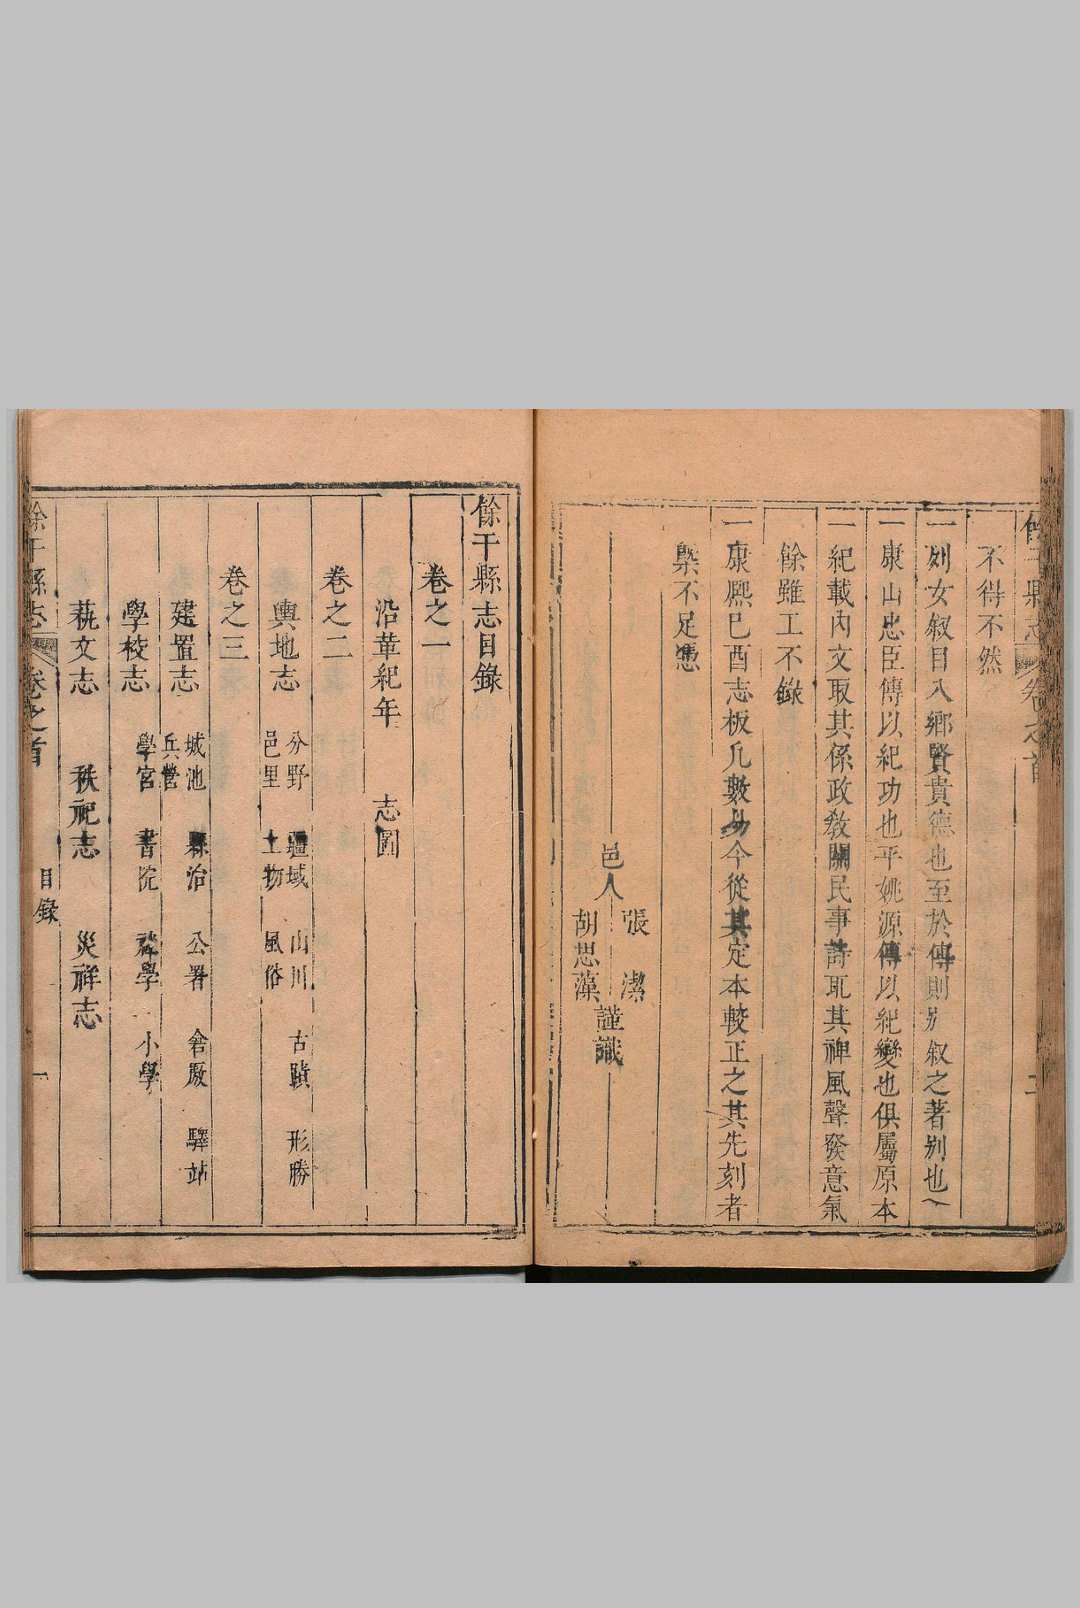 餘干縣志 卷之首
不得不然
一列女叙目入鄉賢貴德也至於傳則另叙之著别也
一康山忠臣傳以紀功也平姚源傳以紀變也俱屬原本
一紀載内文取其係政敎關民事詩取其裨風聲發意氣
餘雖工不錄
一康熙己酉志板凡數易今從其定本較正之其先刻者
槩不足憑
邑人
張 潔
胡思藻
謹識
餘干縣志目錄
卷之一
沿革紀年 志圖
卷之二
輿地志 分野 疆域 山川 古蹟 形勝
邑里 土物 風俗
卷之三
建置志 城池 縣治 公署 倉厫 驛站
兵營
學校志 學宮 書院 社學 小學
藝文志 秩祀志 災祥志
餘干縣志 卷之首 目錄 一